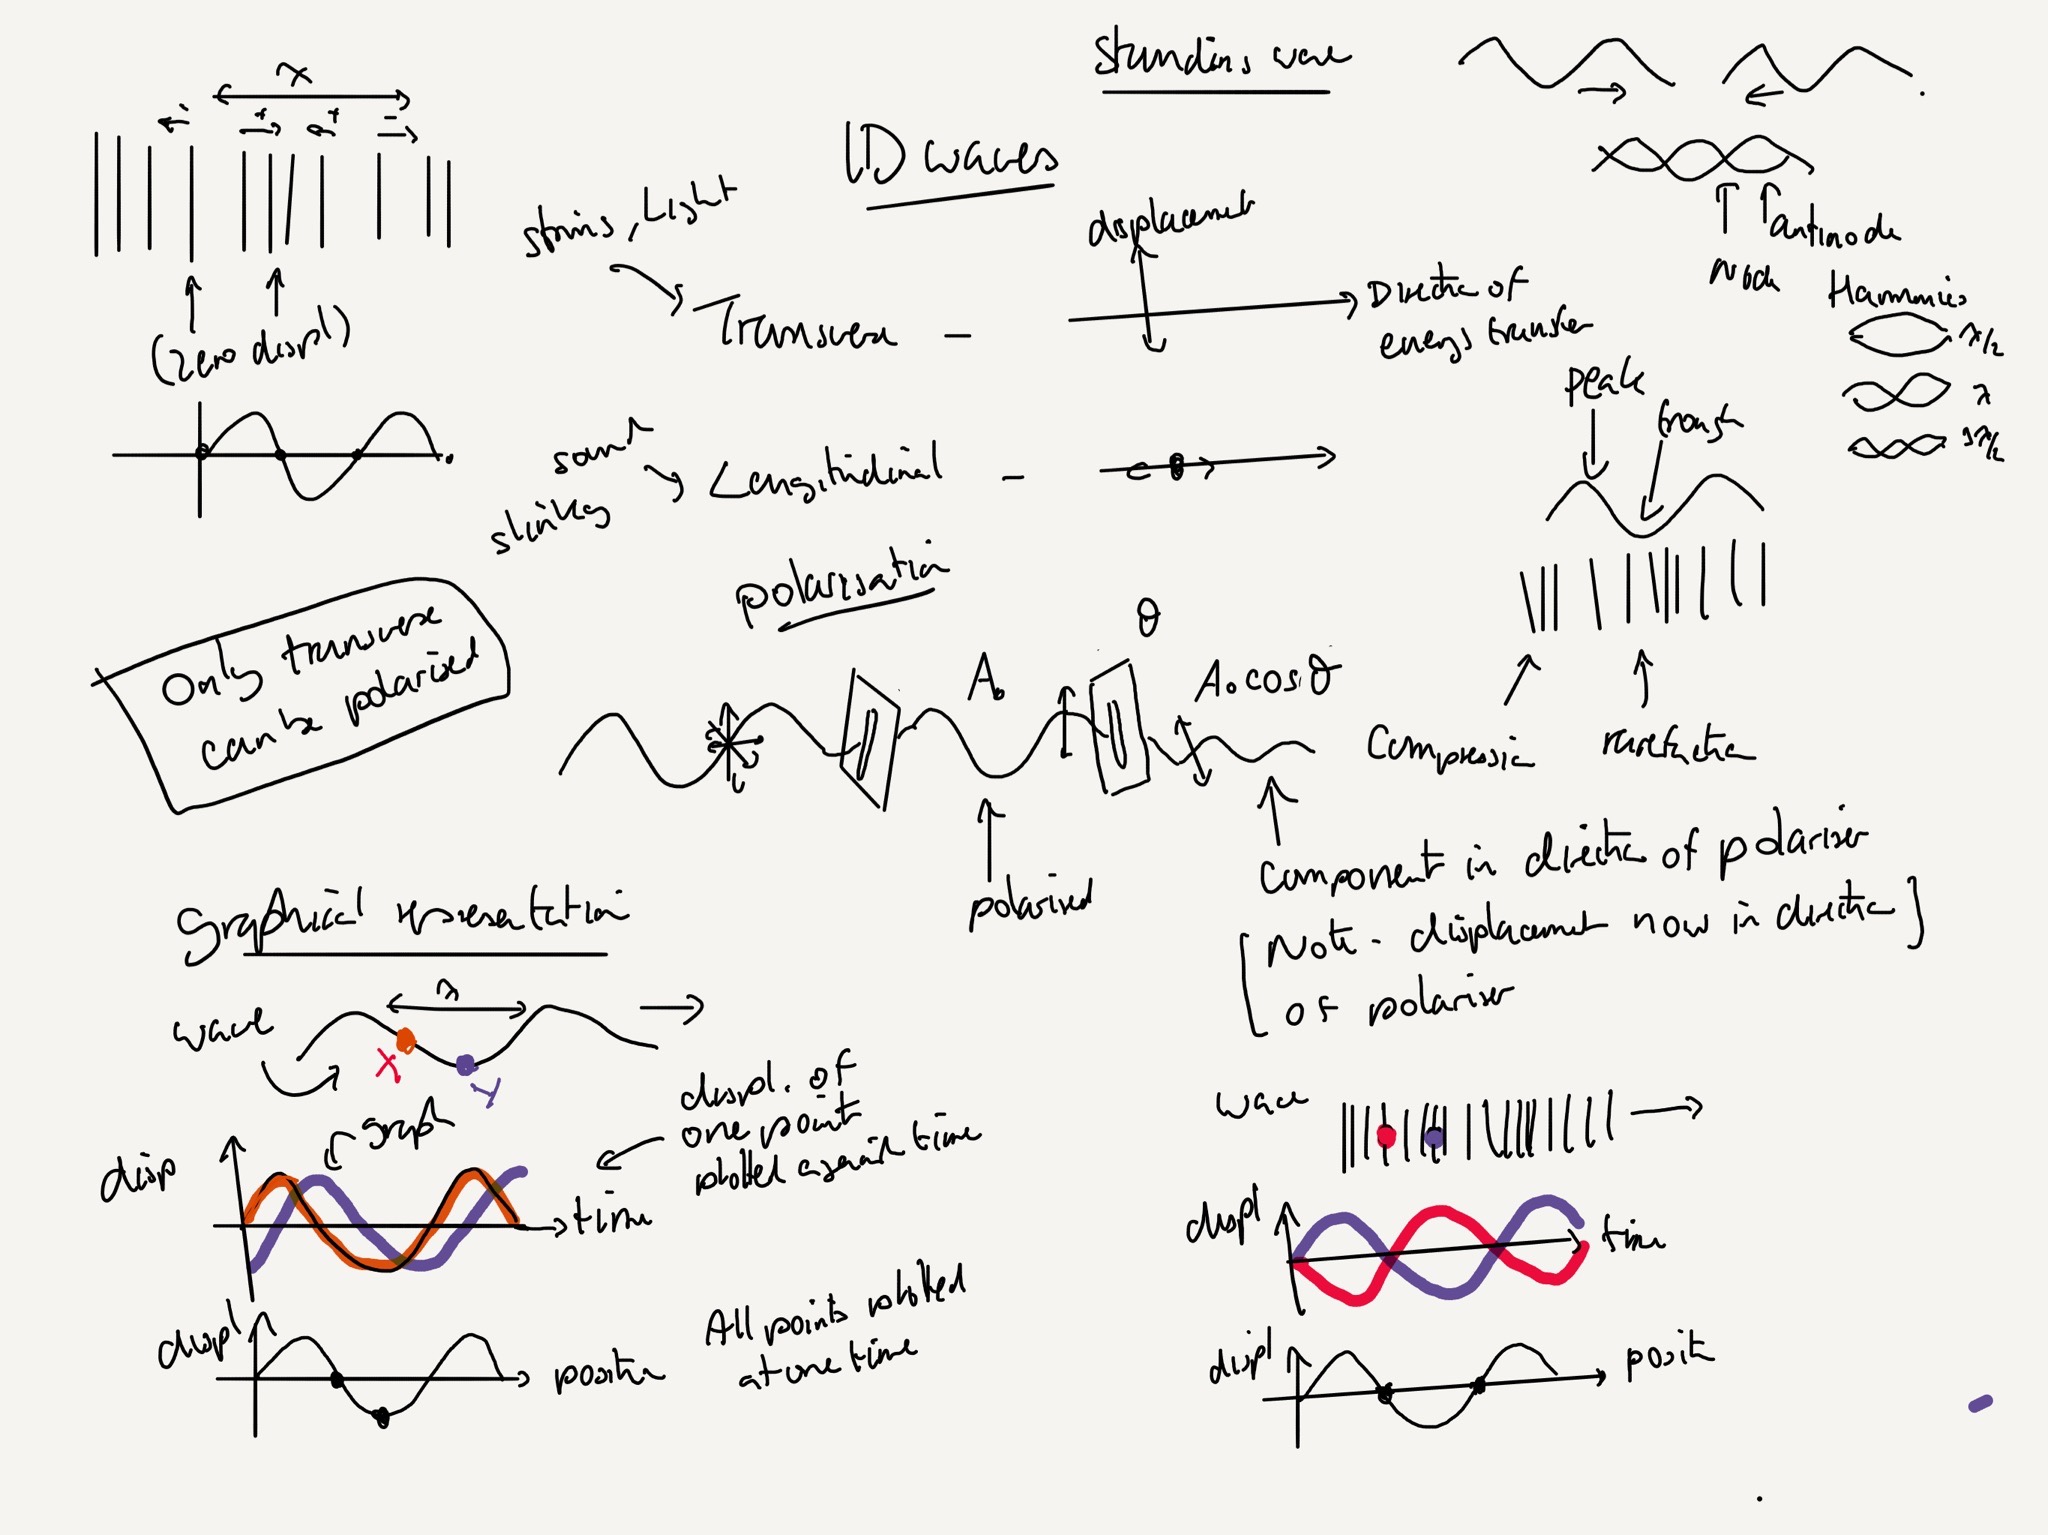 λ
- + + -
(zero displ)
Standing wave
1D waves
strings, Light
Transverse -
displacement
Direction of
energy transfer
node
antinode
Harmonics
λ/2
λ
3λ/2
sound
slinky
Longitudinal -
peak
trough
Compression
rarefaction
polarisation
Only transverse
can be polarised
A₀
θ
A₀ cos θ
polarised
Component in direction of polariser
[Note - displacement now in direction
of polariser]
Graphical representation
wave
λ
X
Y
graph
disp
time
displ. of
one point
plotted against time
displ
position
All points plotted
at one time
wave
displ
time
displ
posit